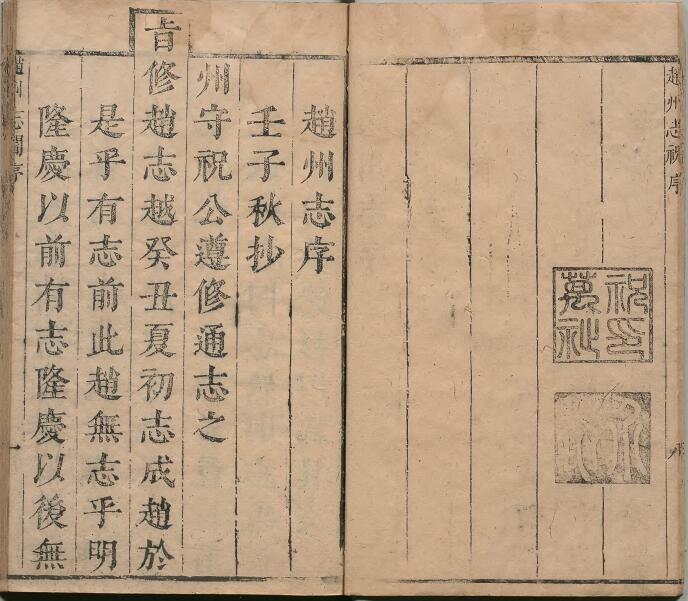 趙州志祝序
祝萬祉印
趙州志序
壬子秋抄
州守祝公遵修通志之
旨修趙志越癸丑夏初志成趙於
是乎有志前此趙無志乎明
隆慶以前有志隆慶以後無
趙州志閻序
一